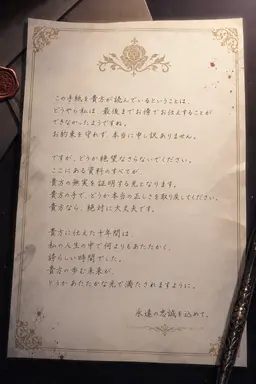 この手紙を貴方が読んでいるということは、
どうやら私は、最後までお傍でお仕えすることが
できなかったようですね。
お約束を守れず、本当に申し訳ありません。
ですが、どうか絶望なさらないでください。
ここにある資料のすべてが、
貴方の無実を証明する光となります。
貴方の手で、どうか本当の正しさを取り戻してください。
貴方なら、絶対に大丈夫です。
貴方に仕えた十年間は、
私の人生の中で何よりもあたたかく、
誇らしい時間でした。
貴方の歩む未来が、
どうかあたたかな光で満たされますように。
永遠の忠誠を込めて。